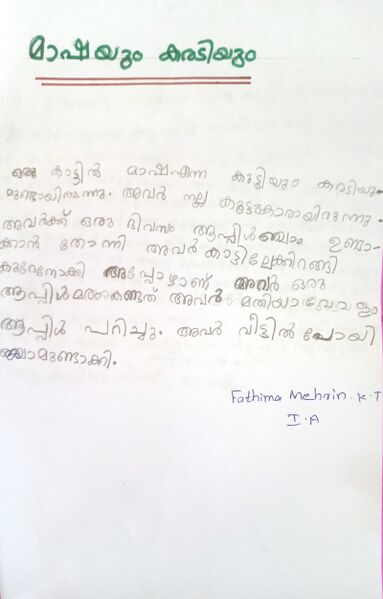 മാഷയും കരടിയും
ഒരു കാട്ടിൽ മാഷഎന്ന കുട്ടിയും കരടിയു-
മുണ്ടായിരുന്നു. അവർ നല്ല കൂട്ടുകാരായിരുന്നു.
അവർക്ക് ഒരു ദിവസം ആപ്പിൾഞ്ചാം ഉണ്ടാ-
ക്കാൻ തോന്നി അവർ കാട്ടിലേക്കിറങ്ങി
കുറേനോക്കി അപ്പോഴാണ് അവർ ഒരു
ആപ്പിൾമരംകണ്ടത് അവർ മതിയാവോളം
ആപ്പിൾ പറിച്ചു. അവർ വീട്ടിൽ പോയി
ഞ്ചാമുണ്ടാക്കി.
Fathima Mehrin. K. T
I. A